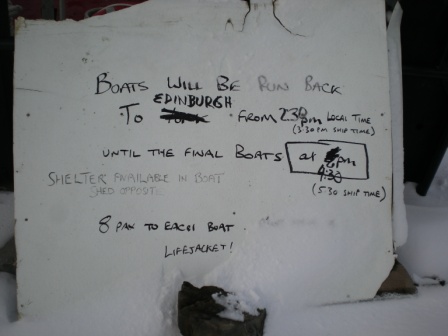 BOATS WILL BE RUN BACK
EDINBURGH
TO FROM 2:30 pm LOCAL TIME
(3:30 PM SHIP TIME)
UNTIL THE FINAL BOATS at pm
4:30
(5:30 SHIP TIME)
SHELTER AVAILABLE IN BOAT
SHED OPPOSITE
8 PAX TO EACH BOAT
LIFEJACKET!